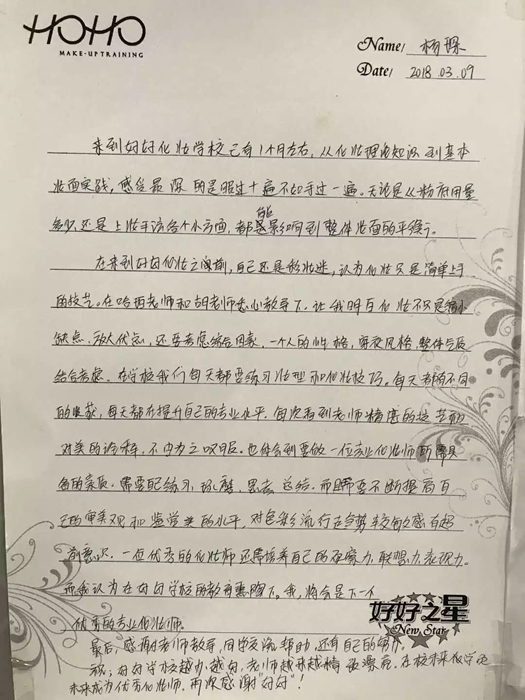 HOHO
MAKE-UP TRAINING
Name: 杨琛
Date: 2018.03.09
来到好好化妆学校已有1个月左右,从化妆理论知识到基本
妆面实践,感受最深的是眼过十遍不如手过一遍。无论是从粉底用量
多少,还是上妆手法各个小方面,都能影响到整体妆面的平衡。
在来到好好化妆之前,自己还是彩妆迷,认为化妆只是简单上手
的技艺。在哈西老师和胡老师悉心教导下,让我明白化妆不只是缩小
缺点,放大优点,还要考虑综合因素,一个人的性格,穿衣风格,整体气质
结合考虑。在学校我们每天都要练习妆理和化妆技巧。每天都有不同
的收获,每天都在提升自己的专业水平。每次看到老师精湛的技艺和
对美的诠释,不由为之叹服。也体会到要做一位专业化妆师所需具
备的素质。需要配练习,琢磨,思考,总结。而且需要不断提高自
己的审美观和鉴赏美的水平,对色彩流行古趋势较敏感有超
前意识。一位优秀的化妆师还需培养自己的观察力,联想力,表现力。
而我认为在好好学校的教育熏陶下。我,将会是下一个
优秀的专业化妆师。
最后,感谢老师教导,同学交流帮助,还有自己的努力。
祝:好好学校越办越好,老师越来越精致漂亮。在校未来化学使
未来成为优秀化妆师,再次感谢“好好”!
好好之星
New Star